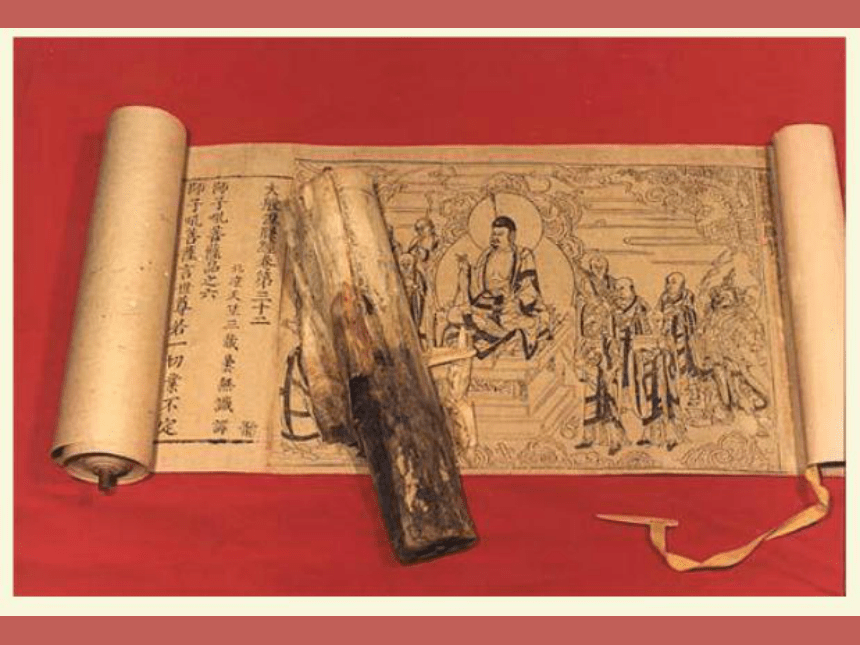 大般涅槃經卷第三十二
北涼天竺三藏曇無讖譯
師子吼菩薩品之六
師子吼菩薩言世尊若一切業不定